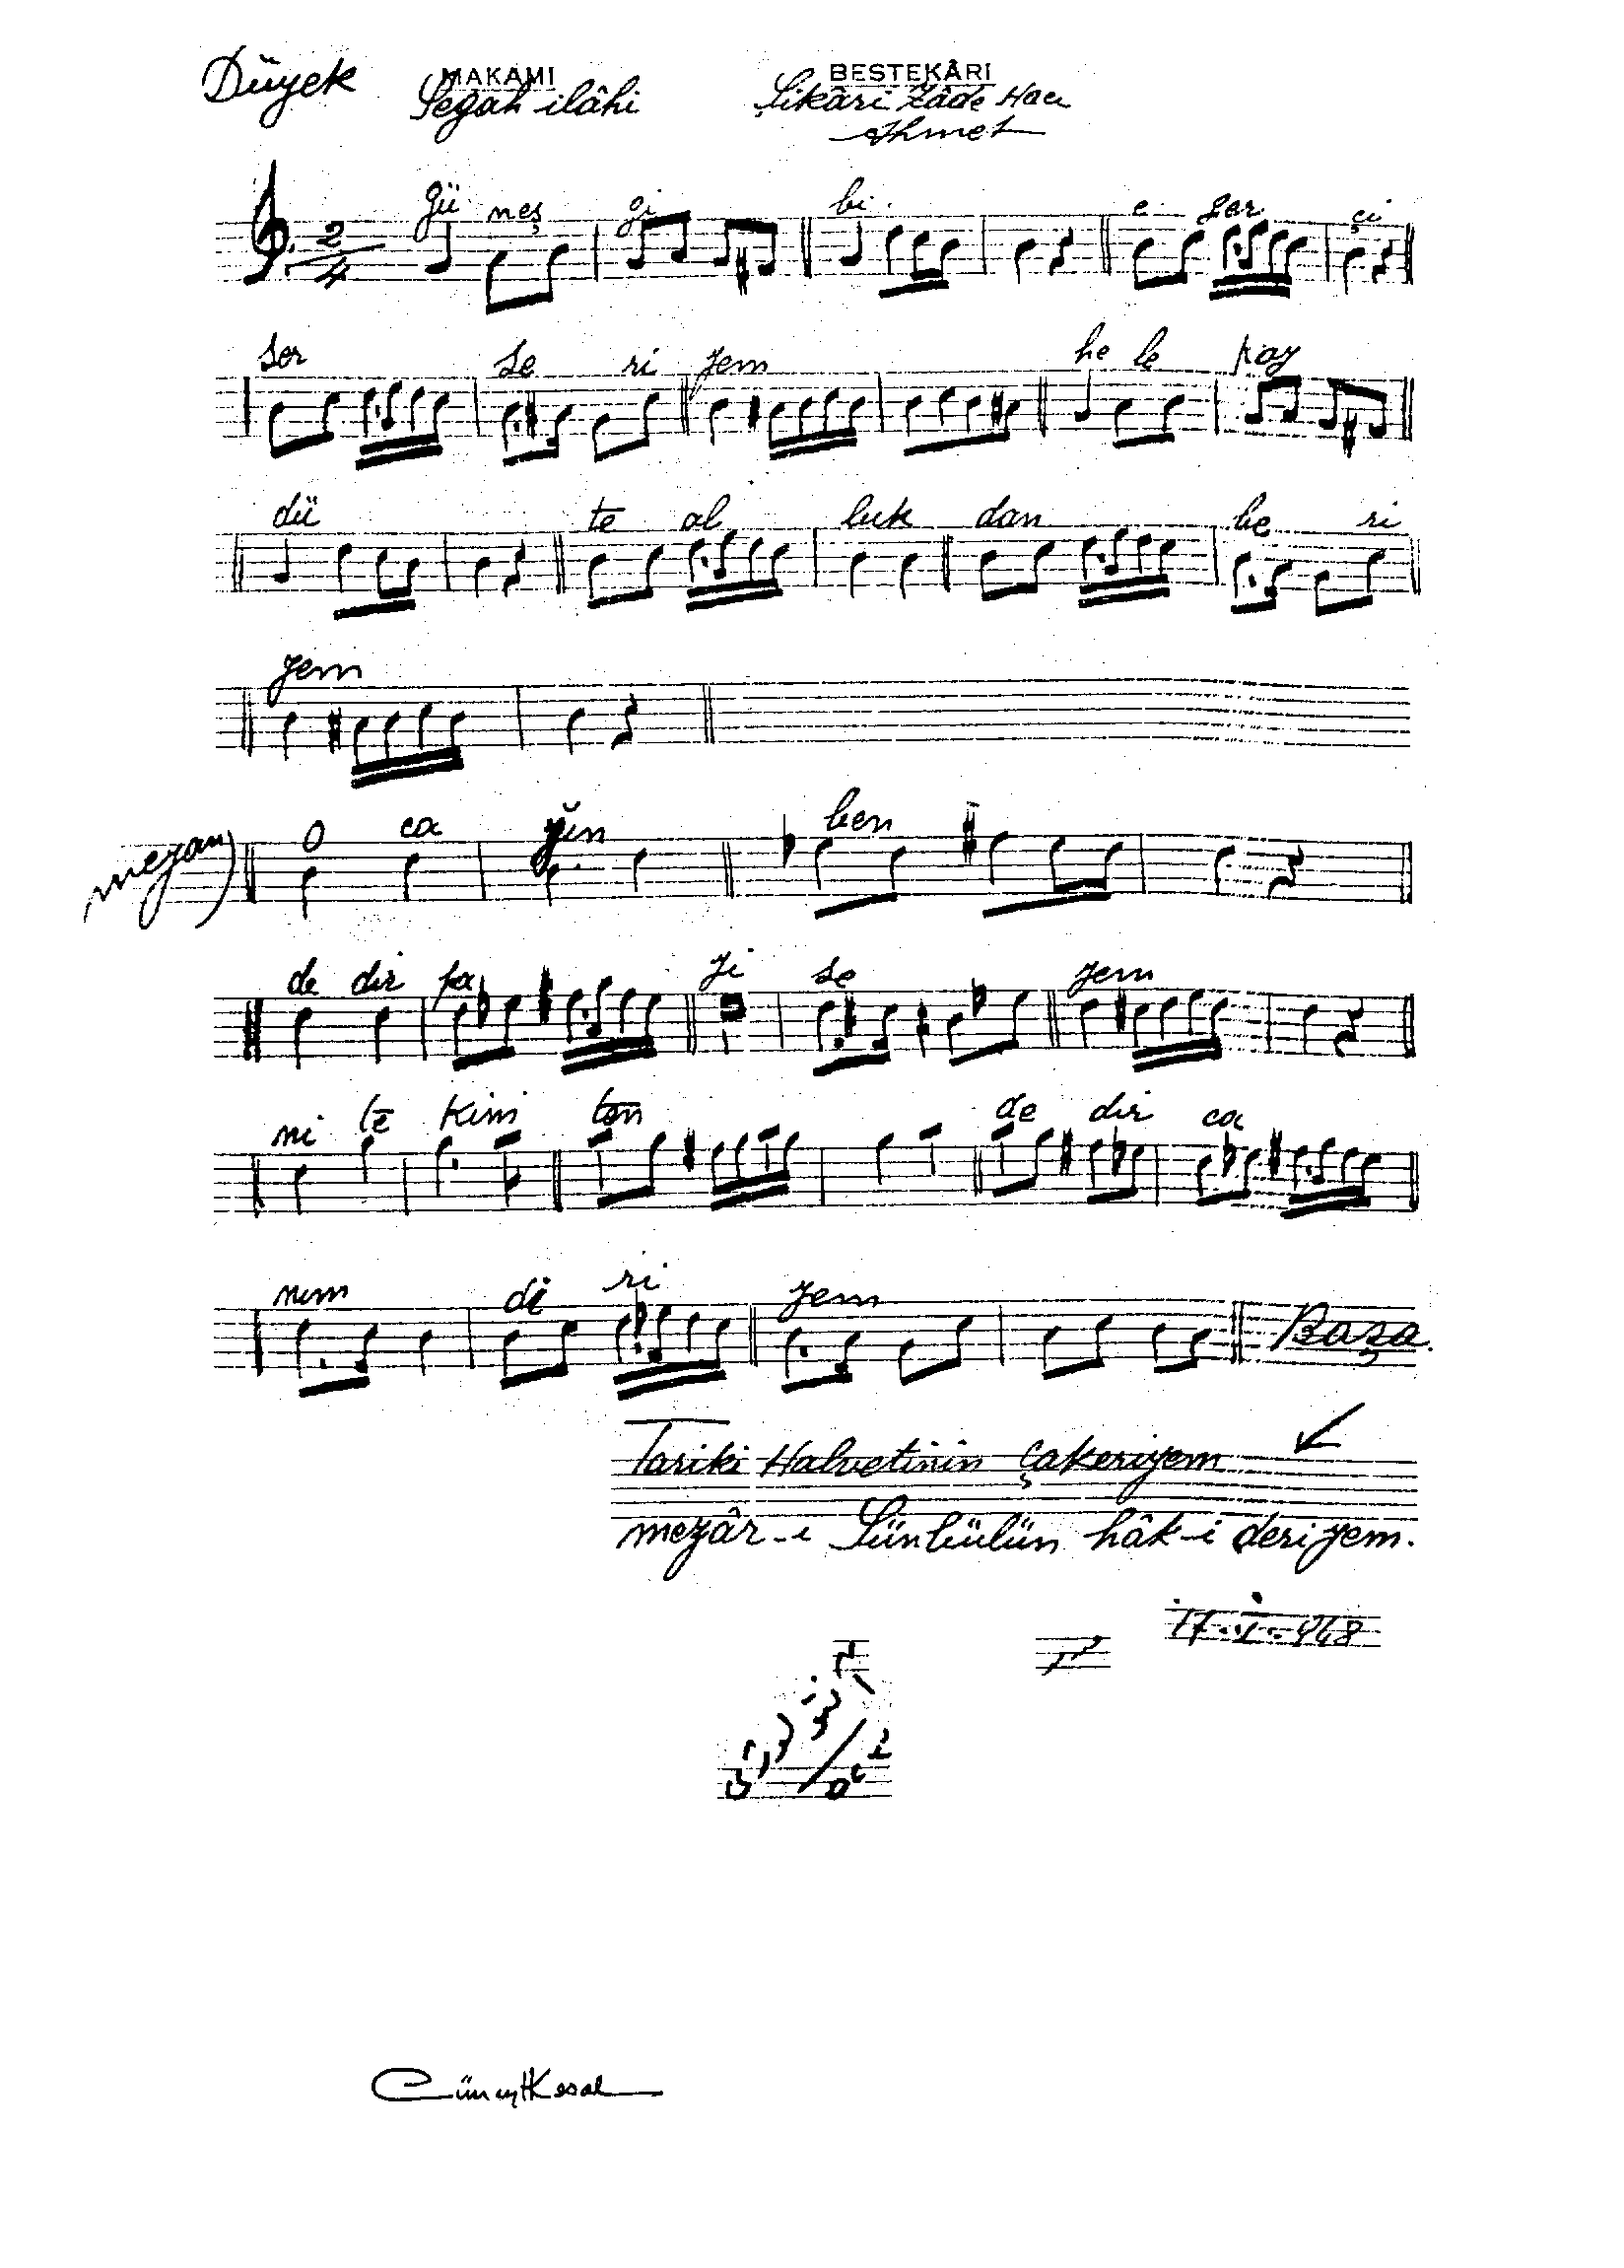 Düyek MAKAMI BESTEKÂRI
Segah ilâhi Şikâri Zâde Hacı
Ahmet
2/4
gü neş gi bi e ger çi
ser se ri yem he le kay
dü te al luk dan be ri
yem
meyan) O ca ğın ben
de dir pa yi se yem
ni te kim ten de dir ca
nım di ri yem Başa
Tariki Halvetinin çakeriyem
mezâr-ı Sünbülün hâk-i deriyem.
17.I.948
Cüneyt Kosal